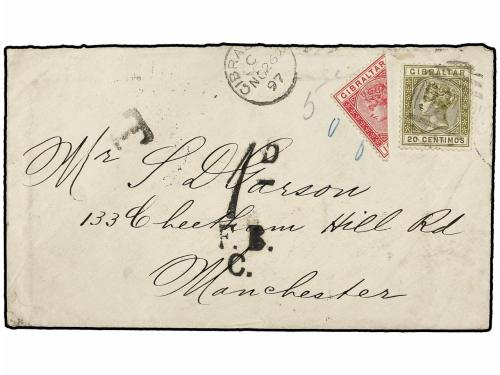 GIBRA
C
NO 26
97
GIBRALTAR
GIBRALTAR
20 CENTIMOS
5
0
0
T
Mr S D Garson
133 Cheetham Hill Rd
Manchester
F. B.
C.